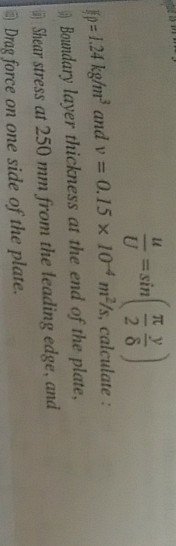 u/U = sin(π/2 y/δ)
If ρ = 1.24 kg/m³ and ν = 0.15 × 10⁻⁴ m²/s, calculate :
Boundary layer thickness at the end of the plate,
Shear stress at 250 mm from the leading edge, and
Drag force on one side of the plate.